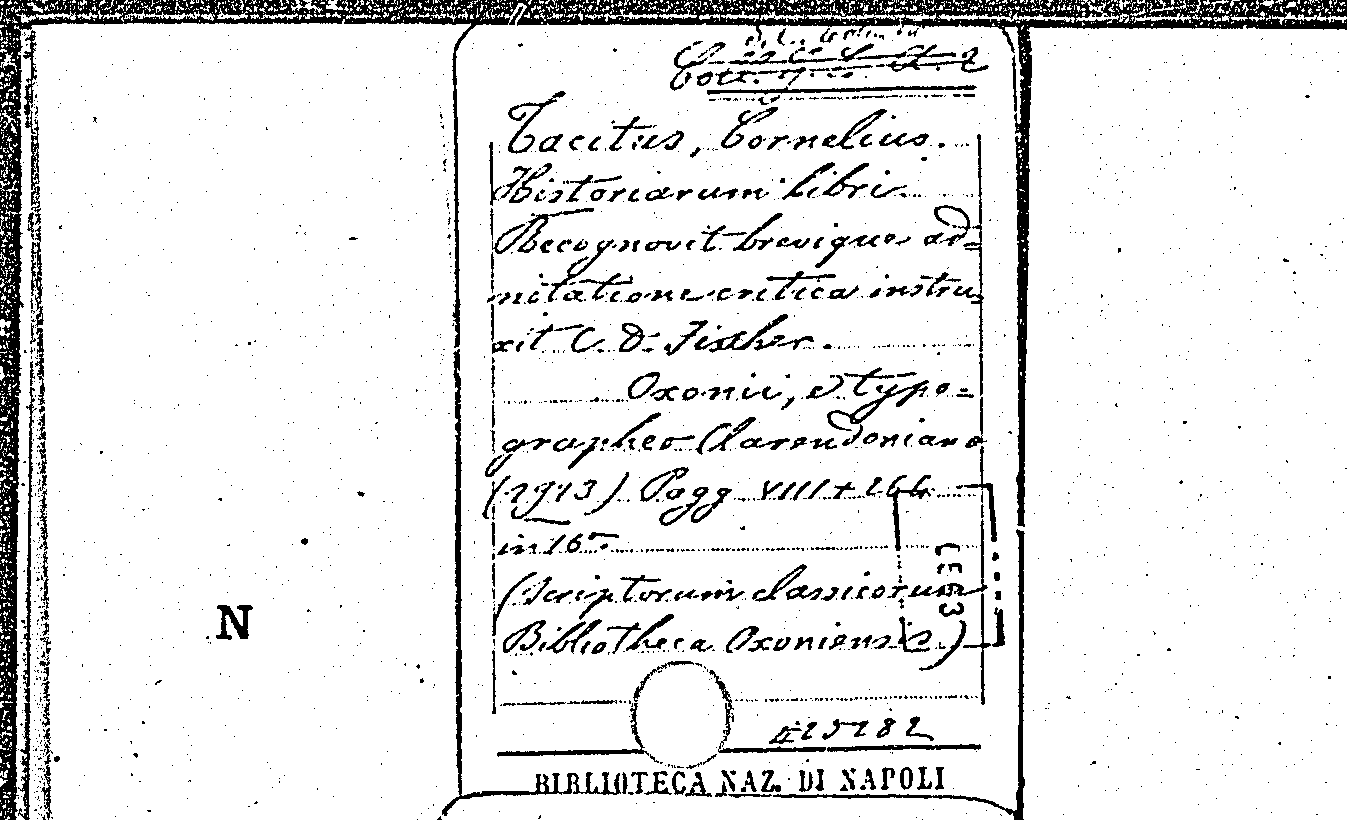 Tacitus, Cornelius.
Historiarum libri
Recognovit brevique ad=
nitatione critica instru=
xit C. D. Fischer.
Oxonii, e typo=
grapheo Clarendoniano
Pagg VIII + 264
in 16°
(Scriptorum classicorum
Bibliotheca Oxoniensis.)
N
425282
BIBLIOTECA NAZ. DI NAPOLI